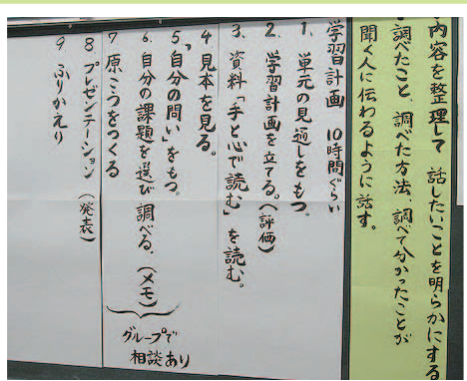 内容を整理して 話したいことを明らかにする
調べたこと、調べた方法、調べて分かったことが
聞く人に伝わるように話す。
学習計画 10時間ぐらい
1. 単元の見通しをもつ。
2. 学習計画を立てる。(評価)
3. 資料「手と心で読む」を読む。
4 見本を見る。
5 "自分の問い"をもつ。
6. 自分の課題を選び調べる。(メモ)
7 原こうをつくる
グループで
相談あり
8 プレゼンテーション (発表)
9 ふりかえり